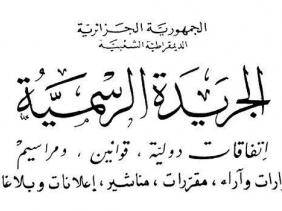 الجمهورية الجزائرية
الديمقراطية الشعبية
الجريدة الرسمية
إتفاقات دولية ، قوانين ، ومراسيم
رارات وآراء ، مقررات ، مناشير ، إعلانات وبلاغا